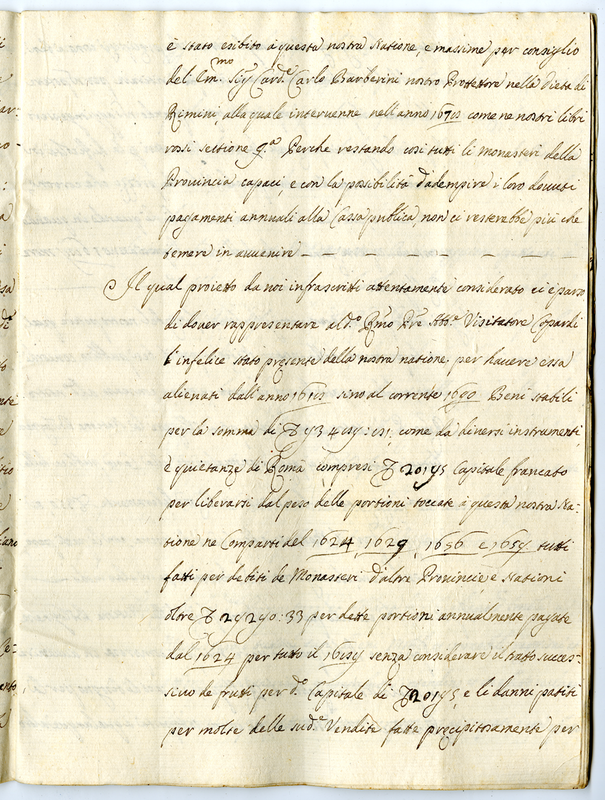 è stato esibito à questa nostra Natione, e massime per consiglio
del Em.mo Sig.r Card.e Carlo Barberini nostro Protettore nella Dieta di
Rimini, alla quale intervenne nell'anno come ne nostri libri
rossi settione 9.a Perche restando così tutti li monasteri della
Provincia capaci, e con la possibilità d'adempire i loro dovuti
pagamenti annuali alla Cassa publica, non ci resterebbe più che
temere in avvenire — — — — — —
Il qual proietto da noi infrascritti attentamente considerato ci è parso
di dover rappresentare al d.o R.mo P.re Abb.e Visitatore Copardi
l'infelice stato presente della nostra natione, per havere essa
alienati dall'anno sino al corrente 1690 Beni stabili
per la somma di come da diversi instrumenti,
e quietanze di Roma compresi Capitale francato
per liberarsi dal peso delle portioni toccate à questa nostra Na-
tione ne Comparti del 1624, 1629, 1656 e 1659 tutti
fatti per debiti de Monasteri d'altre Provincie, e Nationi
oltre per dette portioni annualmente pagate
dal 1624 per tutto il senza considerare il tratto succes-
sivo de frutti per d.o Capitale di e li danni patiti
per molte delle sud.e Vendite fatte precipitosamente per